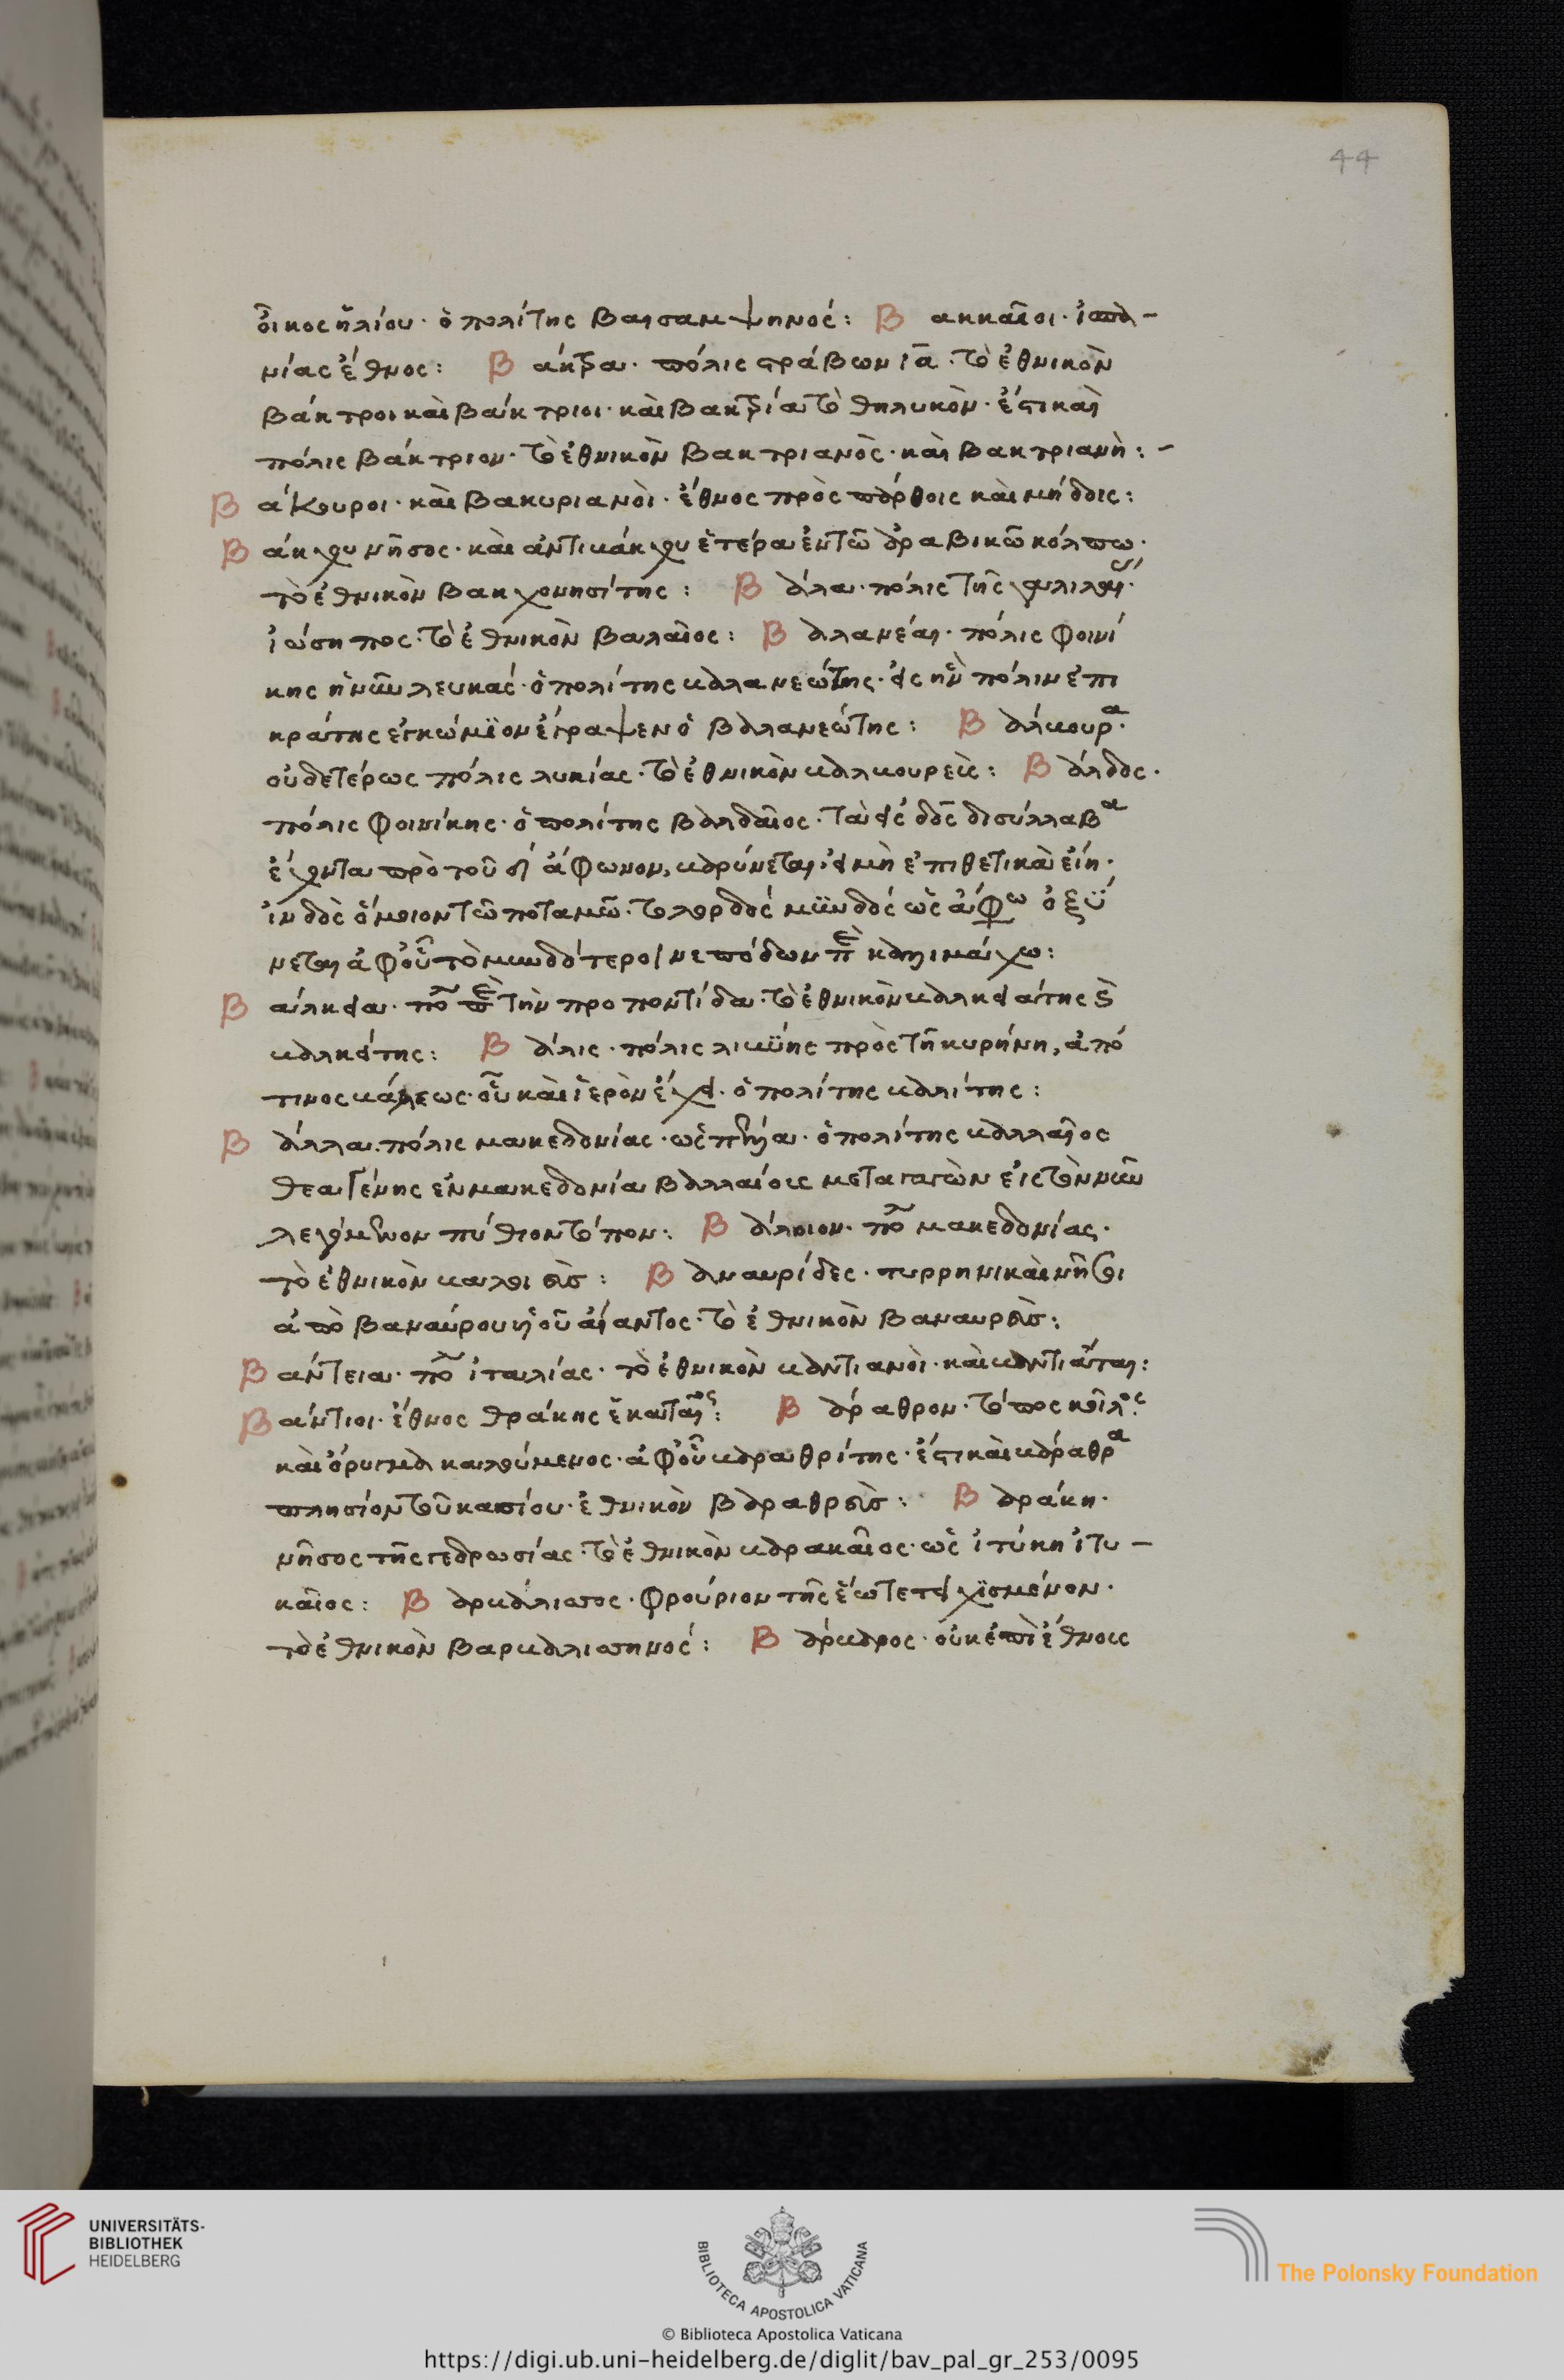 44
οἶκος ἡλίου· ὁ πολίτης βαισαμψηνός: Βακκαῖοι· ἱσπα–
νίας ἔθνος: Βάκτρα· πόλις στράβων ια· τὸ ἐθνικὸν
βάκτροι καὶ βάκτριοι· καὶ βακτρία τὸ θηλυκὸν· ἔστι καὶ
πόλις βάκτριον· τὸ ἐθνικὸν βακτριανὸς· καὶ βακτριανὴ:–
Βάκουροι· καὶ βακυριανὸι· ἔθνος πρὸς πάρθοις καὶ μήδοις:
Βάκχου νῆσος· καὶ ἀντιβάκχου ἑτέρα ἐν τῶ ἀραβικῶ κόλπω·
τὸ ἐθνικὸν βακχονησίτης: Βάλα· πόλις τῆς
ἰώσηπος· τὸ ἐθνικὸν βαλαῖος: Βαλανέαι· πόλις φοινί
κης ἡ νῦν λευκάς· ὁ πολίτης βαλανεώτης· εἰς ἣν πόλιν ἐπι
κράτης ἐγκώμϊον ἔγραψεν ὁ βαλανεώτης: Βάλβουρα·
οὐδετέρως πόλις λυκίας· τὸ ἐθνικὸν βαλβουρεὺς: Βάλδος·
πόλις φοινίκης· ὁ πολίτης βαλδαῖος· τὰ εἰς δος δισύλλαβα
ἔχοντα πρὸ τοῦ δ ἄφωνον, βαρύνεται, εἰ μὴ ἐπιθετικὰ εἴη·
ἰνδὸς ὅμοιον τῶ ποταμῶ· τὸ λορδός μϋνδός ὡς ἀφ' ὀξύ
νεται ἀφ' οὗ τὸ μυνδότεροι νεπόδων π καλλιμάχω:
Βάλκεια· πο περὶ τὴν προποντίδα· τὸ ἐθνικὸν βαλκειάτης ἢ
βαλκείτης: Βάλις· πόλις λιβύης πρὸς τῆ κυρήνη, ἀπό
τινος βάλεως· οὗ καὶ ἱερὸν ἔχει· ὁ πολίτης βαλίτης:
Βάλλα· πόλις μακεδονίας· ὡς πηγα· ὁ πολίτης βαλλαῖος
θεαγένης ἐν μακεδονία βαλλαίους μεταγαγὼν εἰς τὸν νῦν
λεγόμενον πύθιον τόπον: Βάλοιον· πο μακεδονίας·
τὸ ἐθνικὸν βαλοιεὺς: Βαναυρίδες· τυρρηνικὰι νῆσοι
ἀπὸ βαναύρου υἱοῦ αἴαντος· τὸ ἐθνικὸν βαναυρεὺς:
Βάντεια· πο ἰταλίας· τὸ ἐθνικὸν βαντιανὸι· καὶ βαντιάται:
Βάντιοι· ἔθνος θράκης ἑκαταῖος: Βάραθρον· τόπος κοῖλος
καὶ ὄρυγμα καλούμενος· ἀφ' οὗ βαραθρίτης· ἔστι καὶ βάραθρα
πλησίον τοῦ κασίου· ἐθνικὸν βαραθρεὺς: Βαράκη·
νῆσος τῆς γεδρωσίας· τὸ ἐθνικὸν βαρακαῖος· ὡς ἰτύκη ἰτυ–
καῖος: Βαρβάλισσος· φρούριον τῆς ἕω τετειχϊσμένον·
τὸ ἐθνικὸν βαρβαλισσηνός: Βάρβαρος· οὐκ ἐπὶ ἔθνους
UNIVERSITÄTS-
BIBLIOTHEK
HEIDELBERG
BIBLIOTECA APOSTOLICA VATICANA
The Polonsky Foundation
© Biblioteca Apostolica Vaticana
https://digi.ub.uni-heidelberg.de/diglit/bav_pal_gr_253/0095